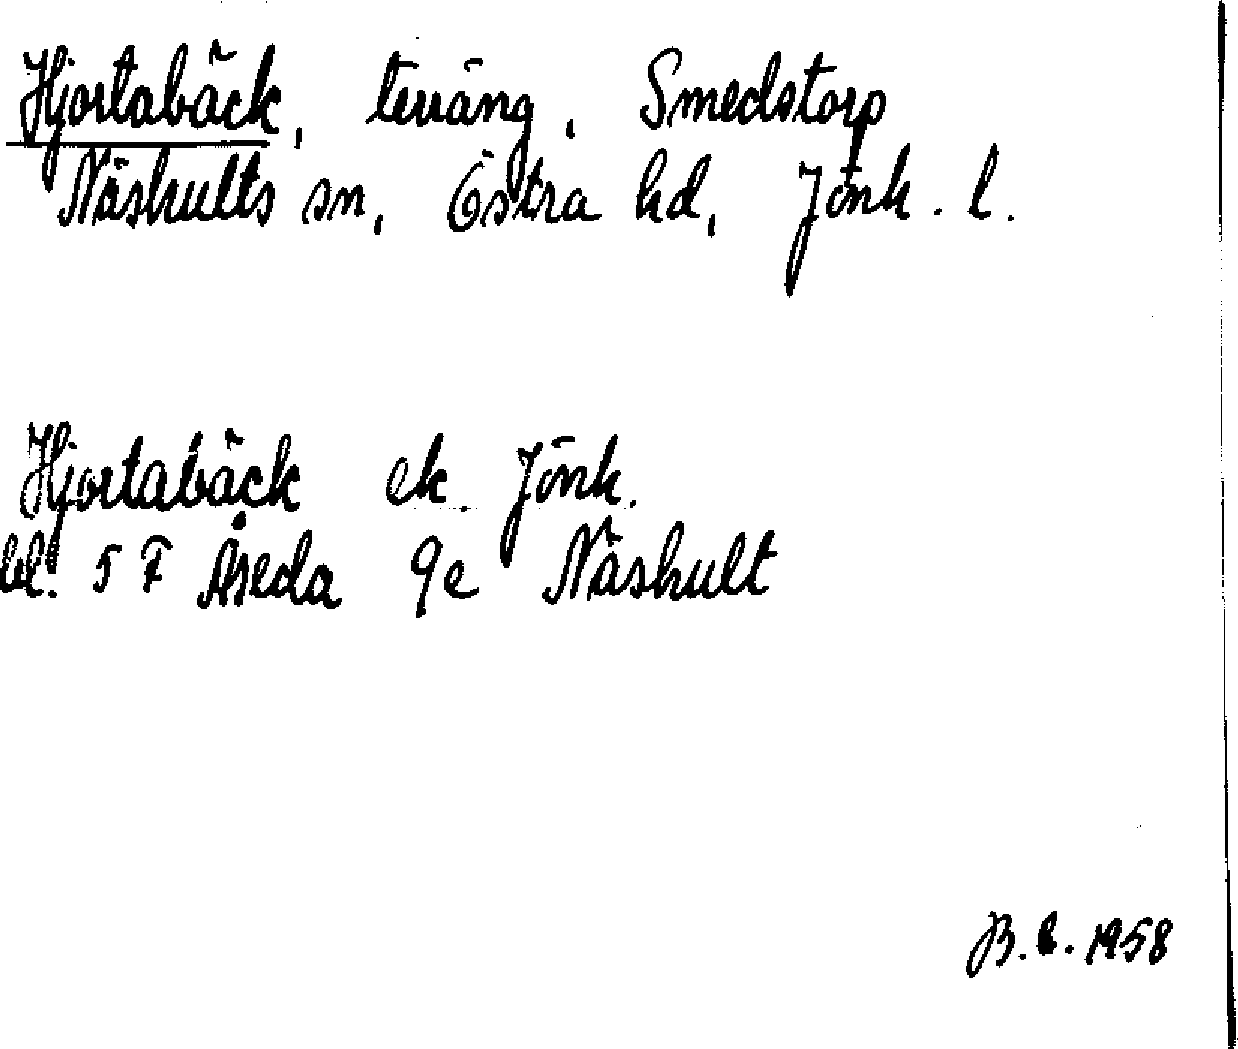 Hjortabäck, terräng, Smedstorp
Näshults sn, Östra hd, Jönk. l.
Hjortabäck ek Jönk.
bl. 5 F Åseda 9e Näshult
1958